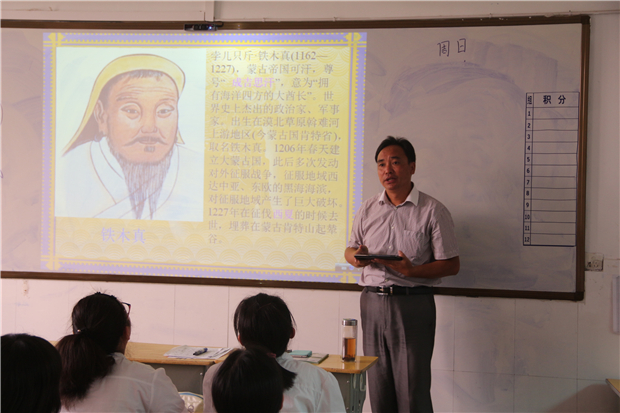 孛儿只斤·铁木真(1162—
1227)，蒙古帝国可汗，尊
号“成吉思汗”，意为“拥
有海洋四方的大酋长”。世
界史上杰出的政治家、军事
家。出生在漠北草原斡难河
上游地区(今蒙古国肯特省)，
取名铁木真。1206年春天建
立大蒙古国，此后多次发动
对外征服战争，征服地域西
达中亚、东欧的黑海海滨，
对征服地域产生了巨大破坏。
1227年在征伐西夏的时候去
世，埋葬在蒙古肯特山起辇
谷。
铁木真
周日
组 积分
1
2
3
4
5
6
7
8
9
10
11
12